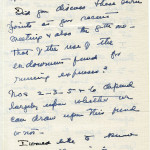 Did you discuss these seven
points as you reason
meeting & also the extra one -
That of the use of the
endowment fund for
running expenses?
Nos 2-3-5+ to depend
largely upon whether we
can draw upon this fund
or not -